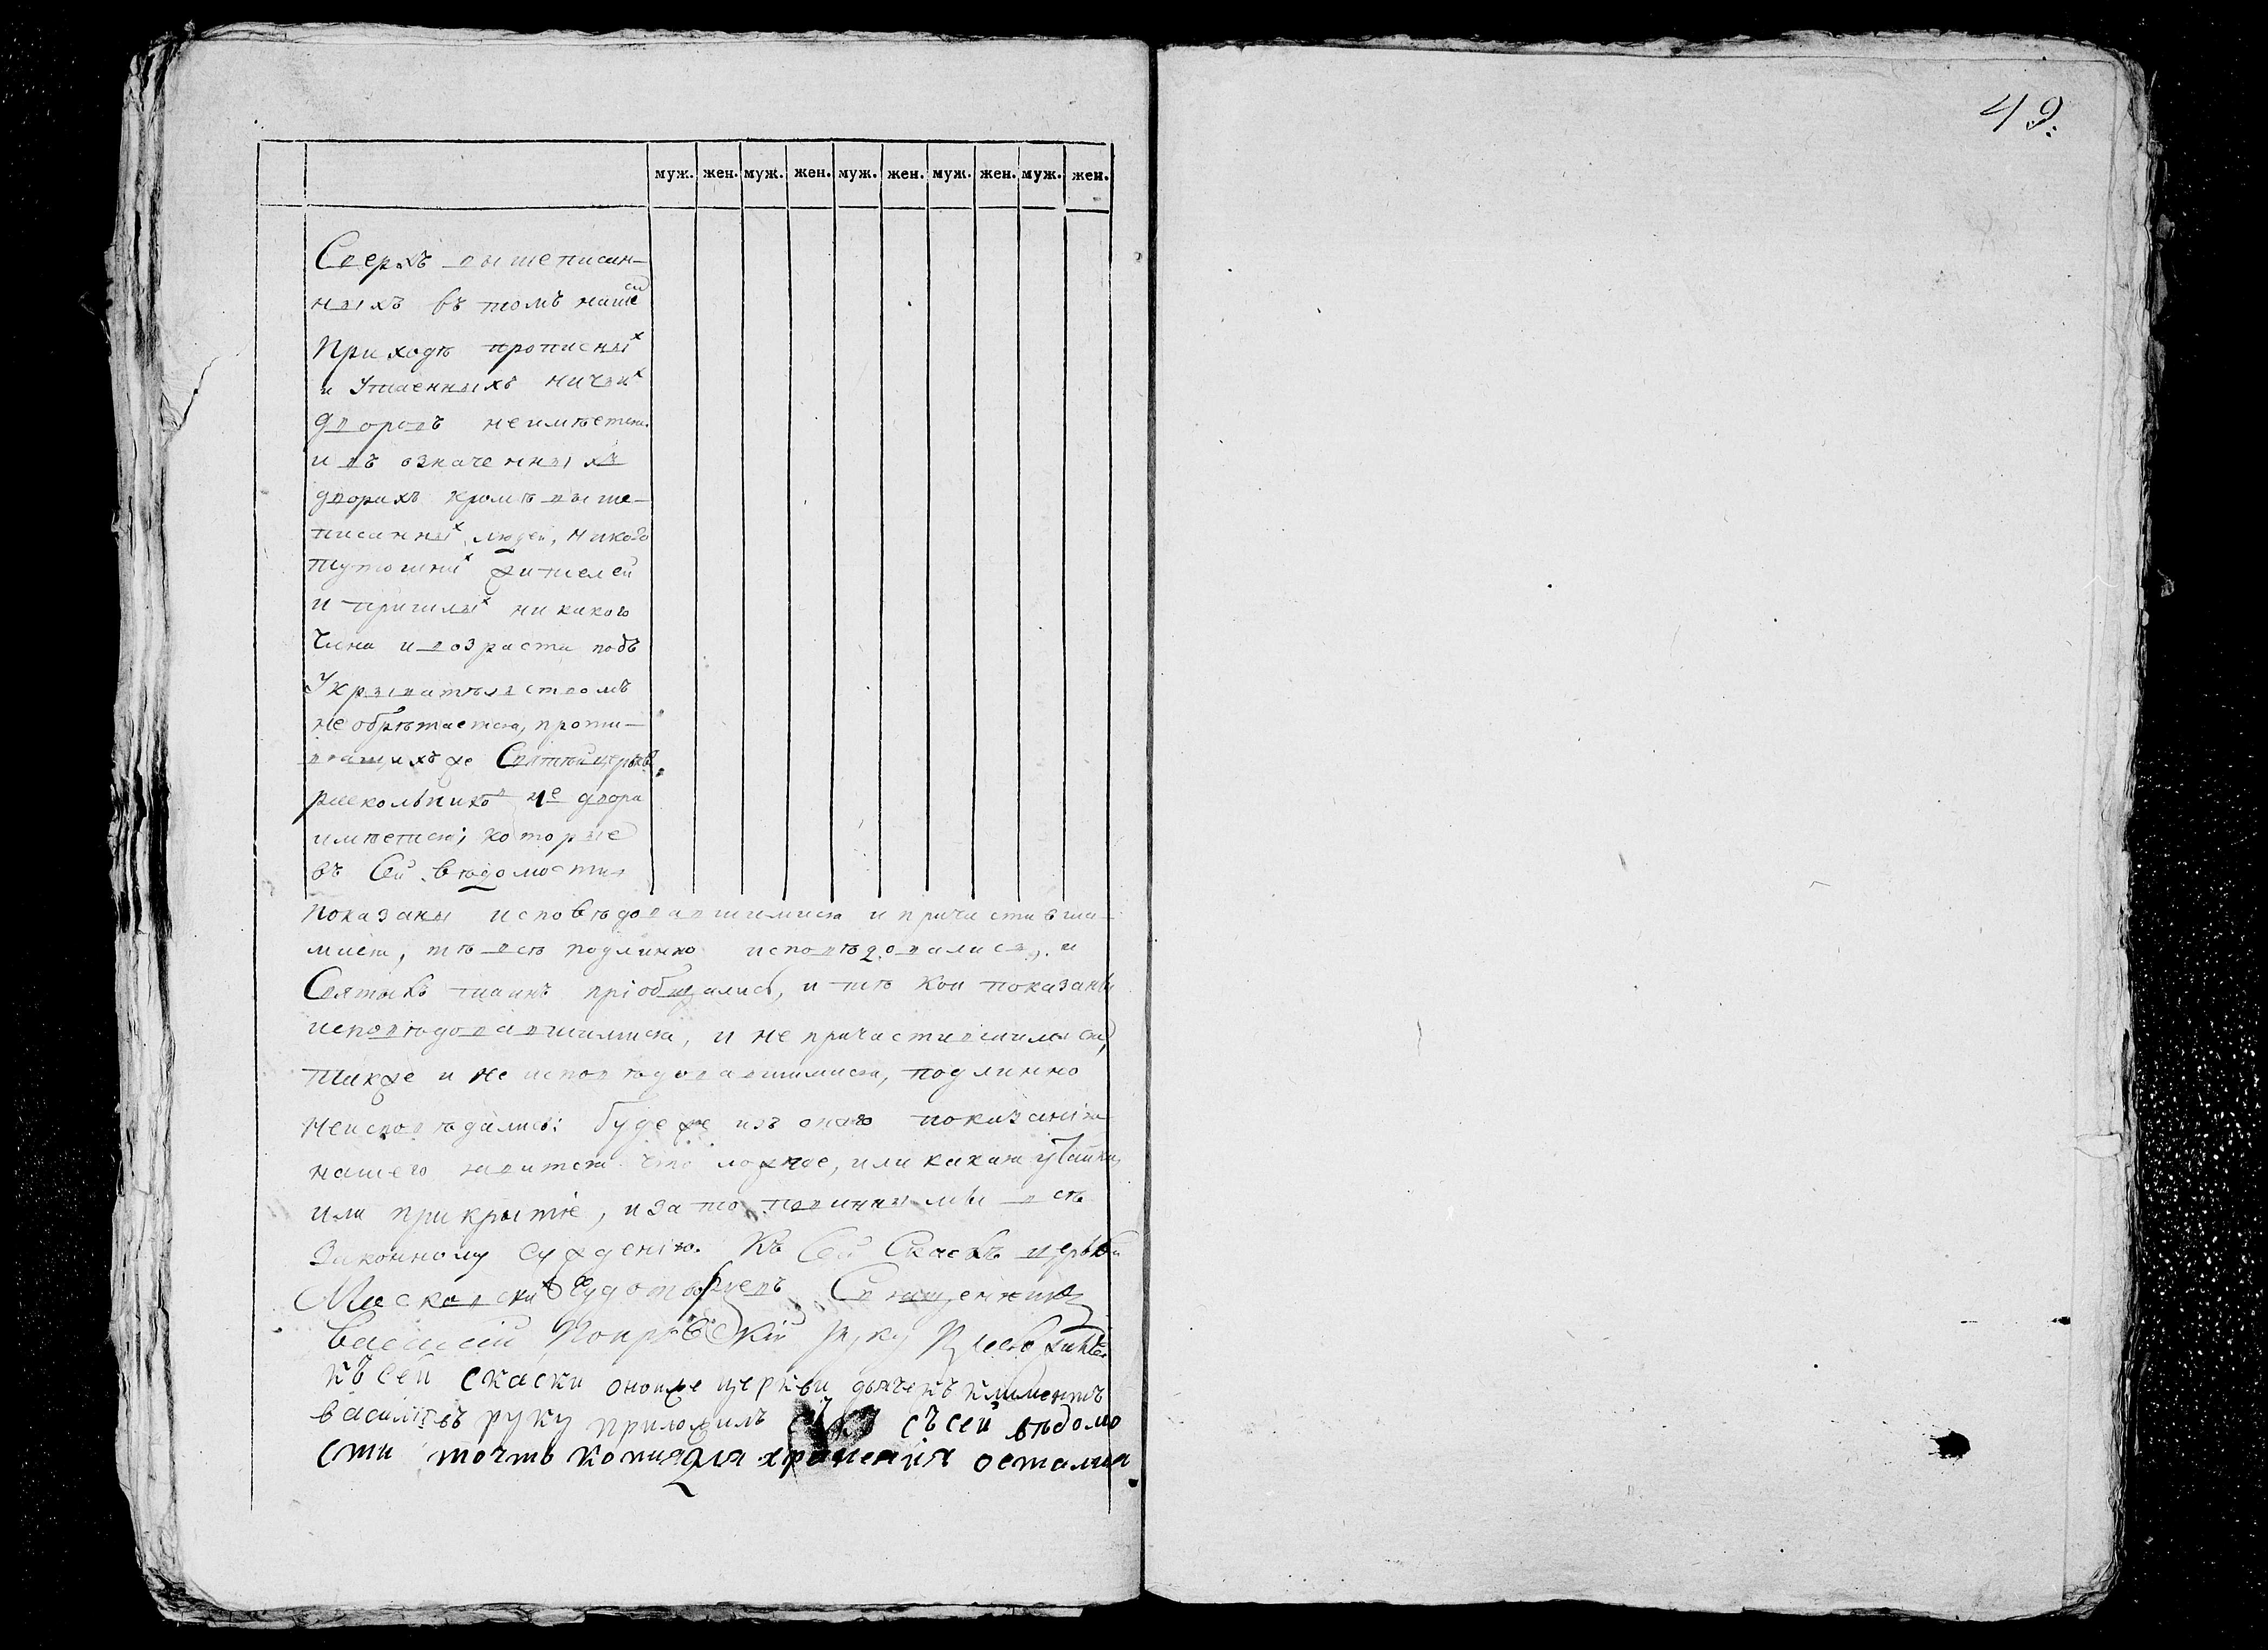 49.
муж. жен. муж. жен. муж. жен. муж. жен. муж. жен.
Сверхъ вышеписан-
ныхъ въ томъ нашемъ
приходѣ прописныхъ
и утаенныхъ ничьихъ
дворовъ неимѣется.
и въ означенныхъ
дворахъ кромѣ выше-
писанныхъ людей, никого
тутошнихъ жителей
и пришлыхъ никакого
чина и возраста подъ
укрывательствомъ
не обрѣтается, проти-
вящихъ же Святѣй церкви
раскольниковъ не двора
имѣется; которые
въ Сей вѣдомости
показаны исповѣдовавшимися и причастивши-
мися, тѣ всѣ подлинно исповѣдовались, и
Святыхъ таинъ пріобщались, и тѣ кои показаны
исповѣдовавшимися, и не причастившимися,
также и не исповѣдовавшимися, подлинно
неисповѣдались: буде же изъ онаго показанія
нашего явится что ложное, или какая утайка,
или прикрытіе, и за то повинны мы всѣ
законному сужденію. Къ Сей Скаскѣ церкви
Московскихъ Чудотворцевъ Священникъ
Василій руку приложилъ
къ сей скаски оной же церкви дьячекъ климентъ
василіевъ руку приложилъ съ сей вѣдомо
сти точть копия для храненія осталася